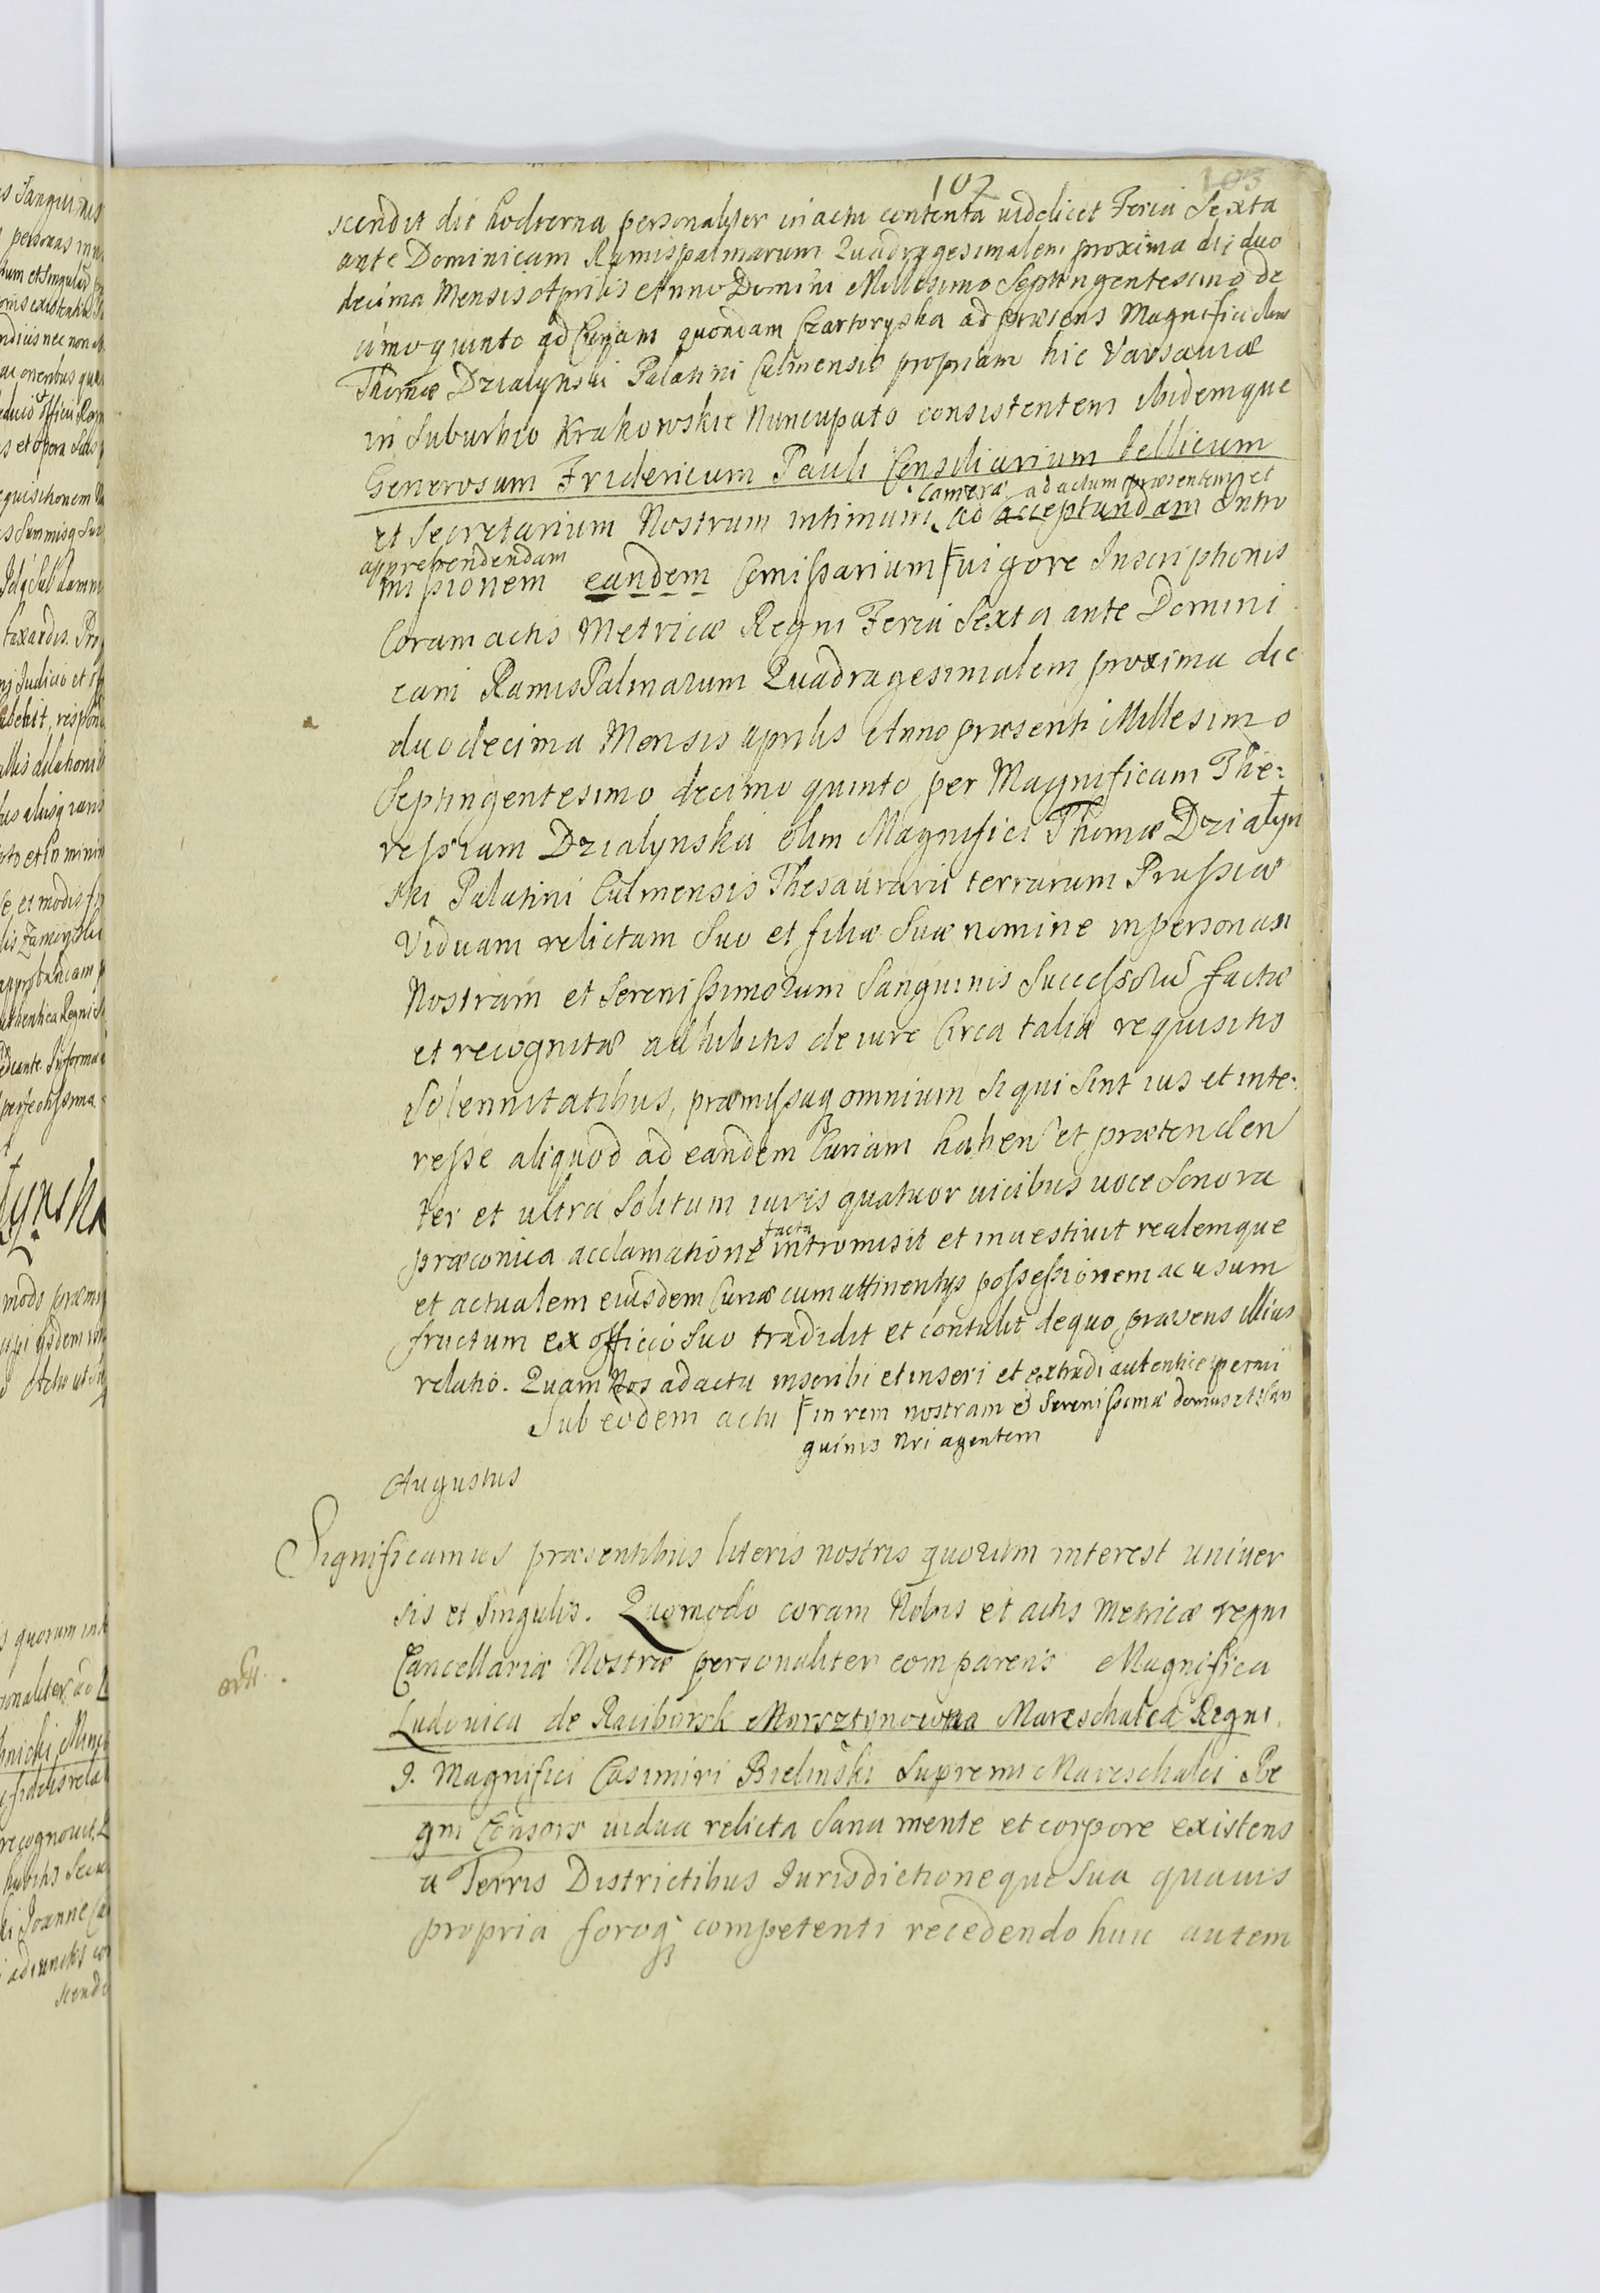 102 103
scendit die hodierna personaliter in actu contenta videlicet Feria Sexta
ante Dominicam Ramispalmarum Quadragesimalem proxima die duo
decima Mensis Aprilis Anno Domini Millesimo Septingentesimo de
cimo quinto ad Curiam quondam Czartoryska ad præsens Magnifici olim
Thomæ Dzialynski Palatini Culmensis propriam hic Varsaviæ
in Suburbio Krakowskie Nuncupato consistentem ibidemque
Generosum Fridericum Pauli Consiliarium bellicum
Cameræ ad actum præsentem et
et Secretarium Nostrum intimum ad acceptandam Intro
apprehendendam
missionem eandem Comissarium vigore Inscriptionis
Coram actis Metricæ Regni Feria Sexta ante Domini
cam RamisPalmarum Quadragesimalem proxima die
duodecima Mensis aprilis Anno præsenti Millesimo
Septingentesimo decimo quinto per Magnificam The:
ressiam Dzialynska olim Magnifici Thomæ Dzialyn
ski Palatini Culmensis Thesaurarii terrarum Prussiæ
Viduam relictam Suo et filiæ Suæ nomine in personam
Nostram et Serenissimorum Sanguinis Successorũ factæ
et recognitæ adhibitis de iure Circa talia requisitis
Solennitatibus, præmissaq omnium si qui sint ius et inte:
resse aliquod ad eandem Curiam haben et prætenden
ter et ultra Solitum iuris quatuor vicibus voce Sonora
facta
præconica acclamatione intromisit et investivit realemque
et actualem eiusdem Curiæ cum attinentys possessionem ac usum
fructum ex officio Suo tradidit et contulit de quo præsens illius
relatio. Quam Nos ad acta inscribi et inseri et extradi autentice permi
Sub eodem actu in rem nostram & Serenissimæ domus et San
guinis Nri agentem
Augustus
Significamus præsentibus literis nostris quorum interest univer
sis et Singulis. Quomodo coram Nobis et actis Metricæ regni
Cancellariæ Nostræ personaliter comparens Magnifica
Ludovica de Raciborsk Morsztynowna Mareschalca Regni
G. Magnifici Casimiri Bielinski Supremi Mareschalci Re
gni Consors vidua relicta Sana mente et corpore existens
a Terris Districtibus Jurisdictioneque Sua quavis
propria foroq competenti recedendo huic autem